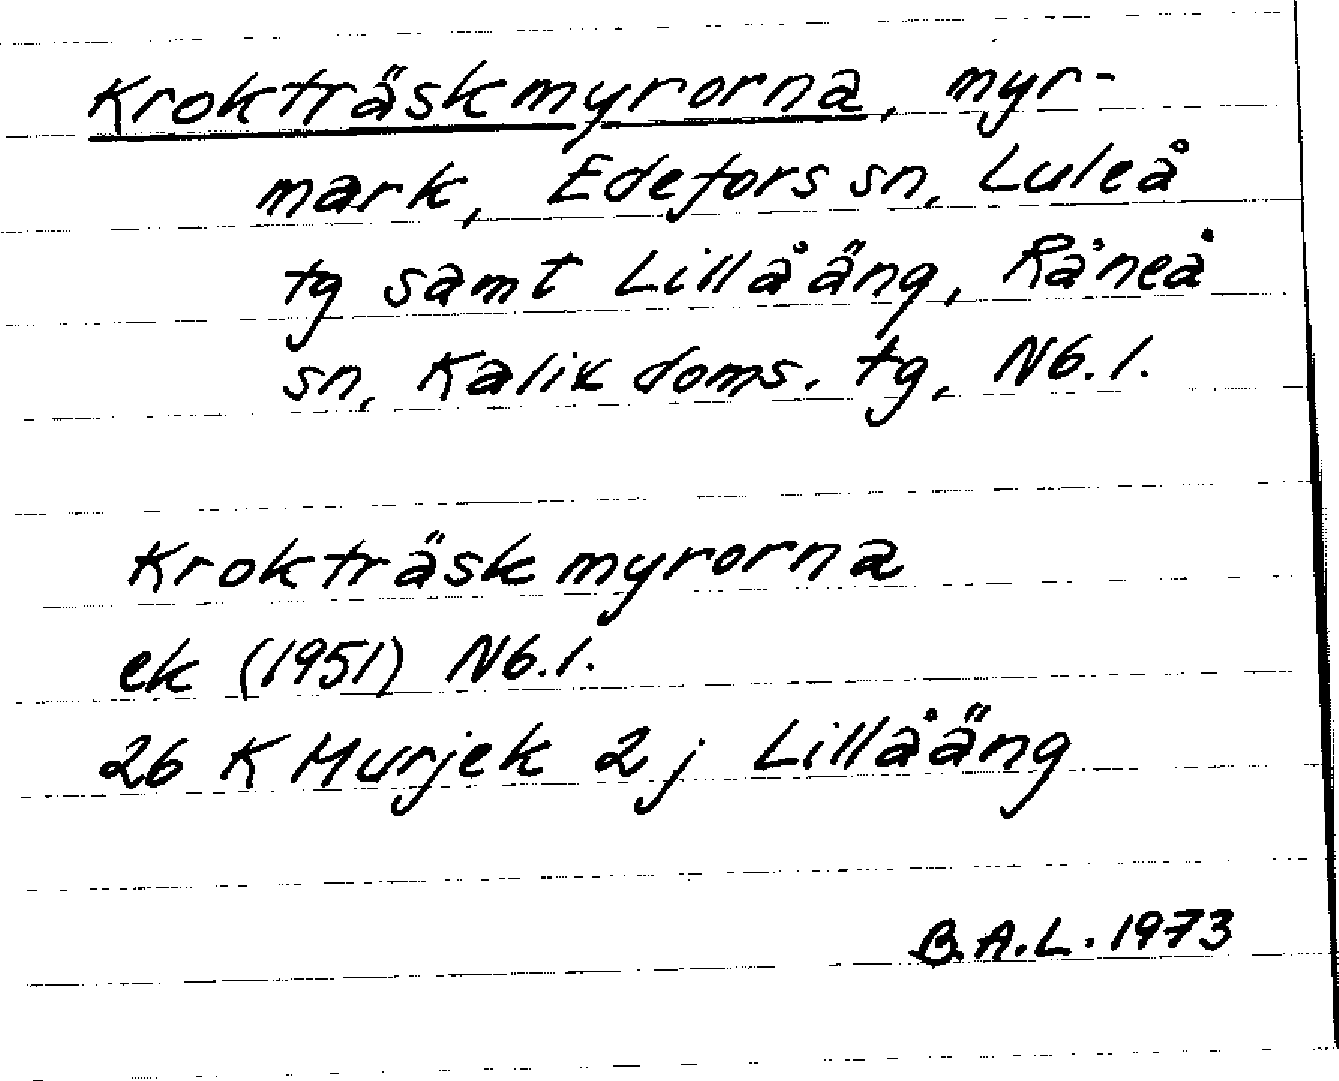 Krokträskmyrorna, myr-
mark, Edefors sn, Luleå
tg samt Lillåäng, Råneå
sn, Kalix doms. tg, Nb. l.
Krokträskmyrorna
ek (1951) Nb. l.
26 K Murjek 2 j Lillåäng
B.A.L. 1973